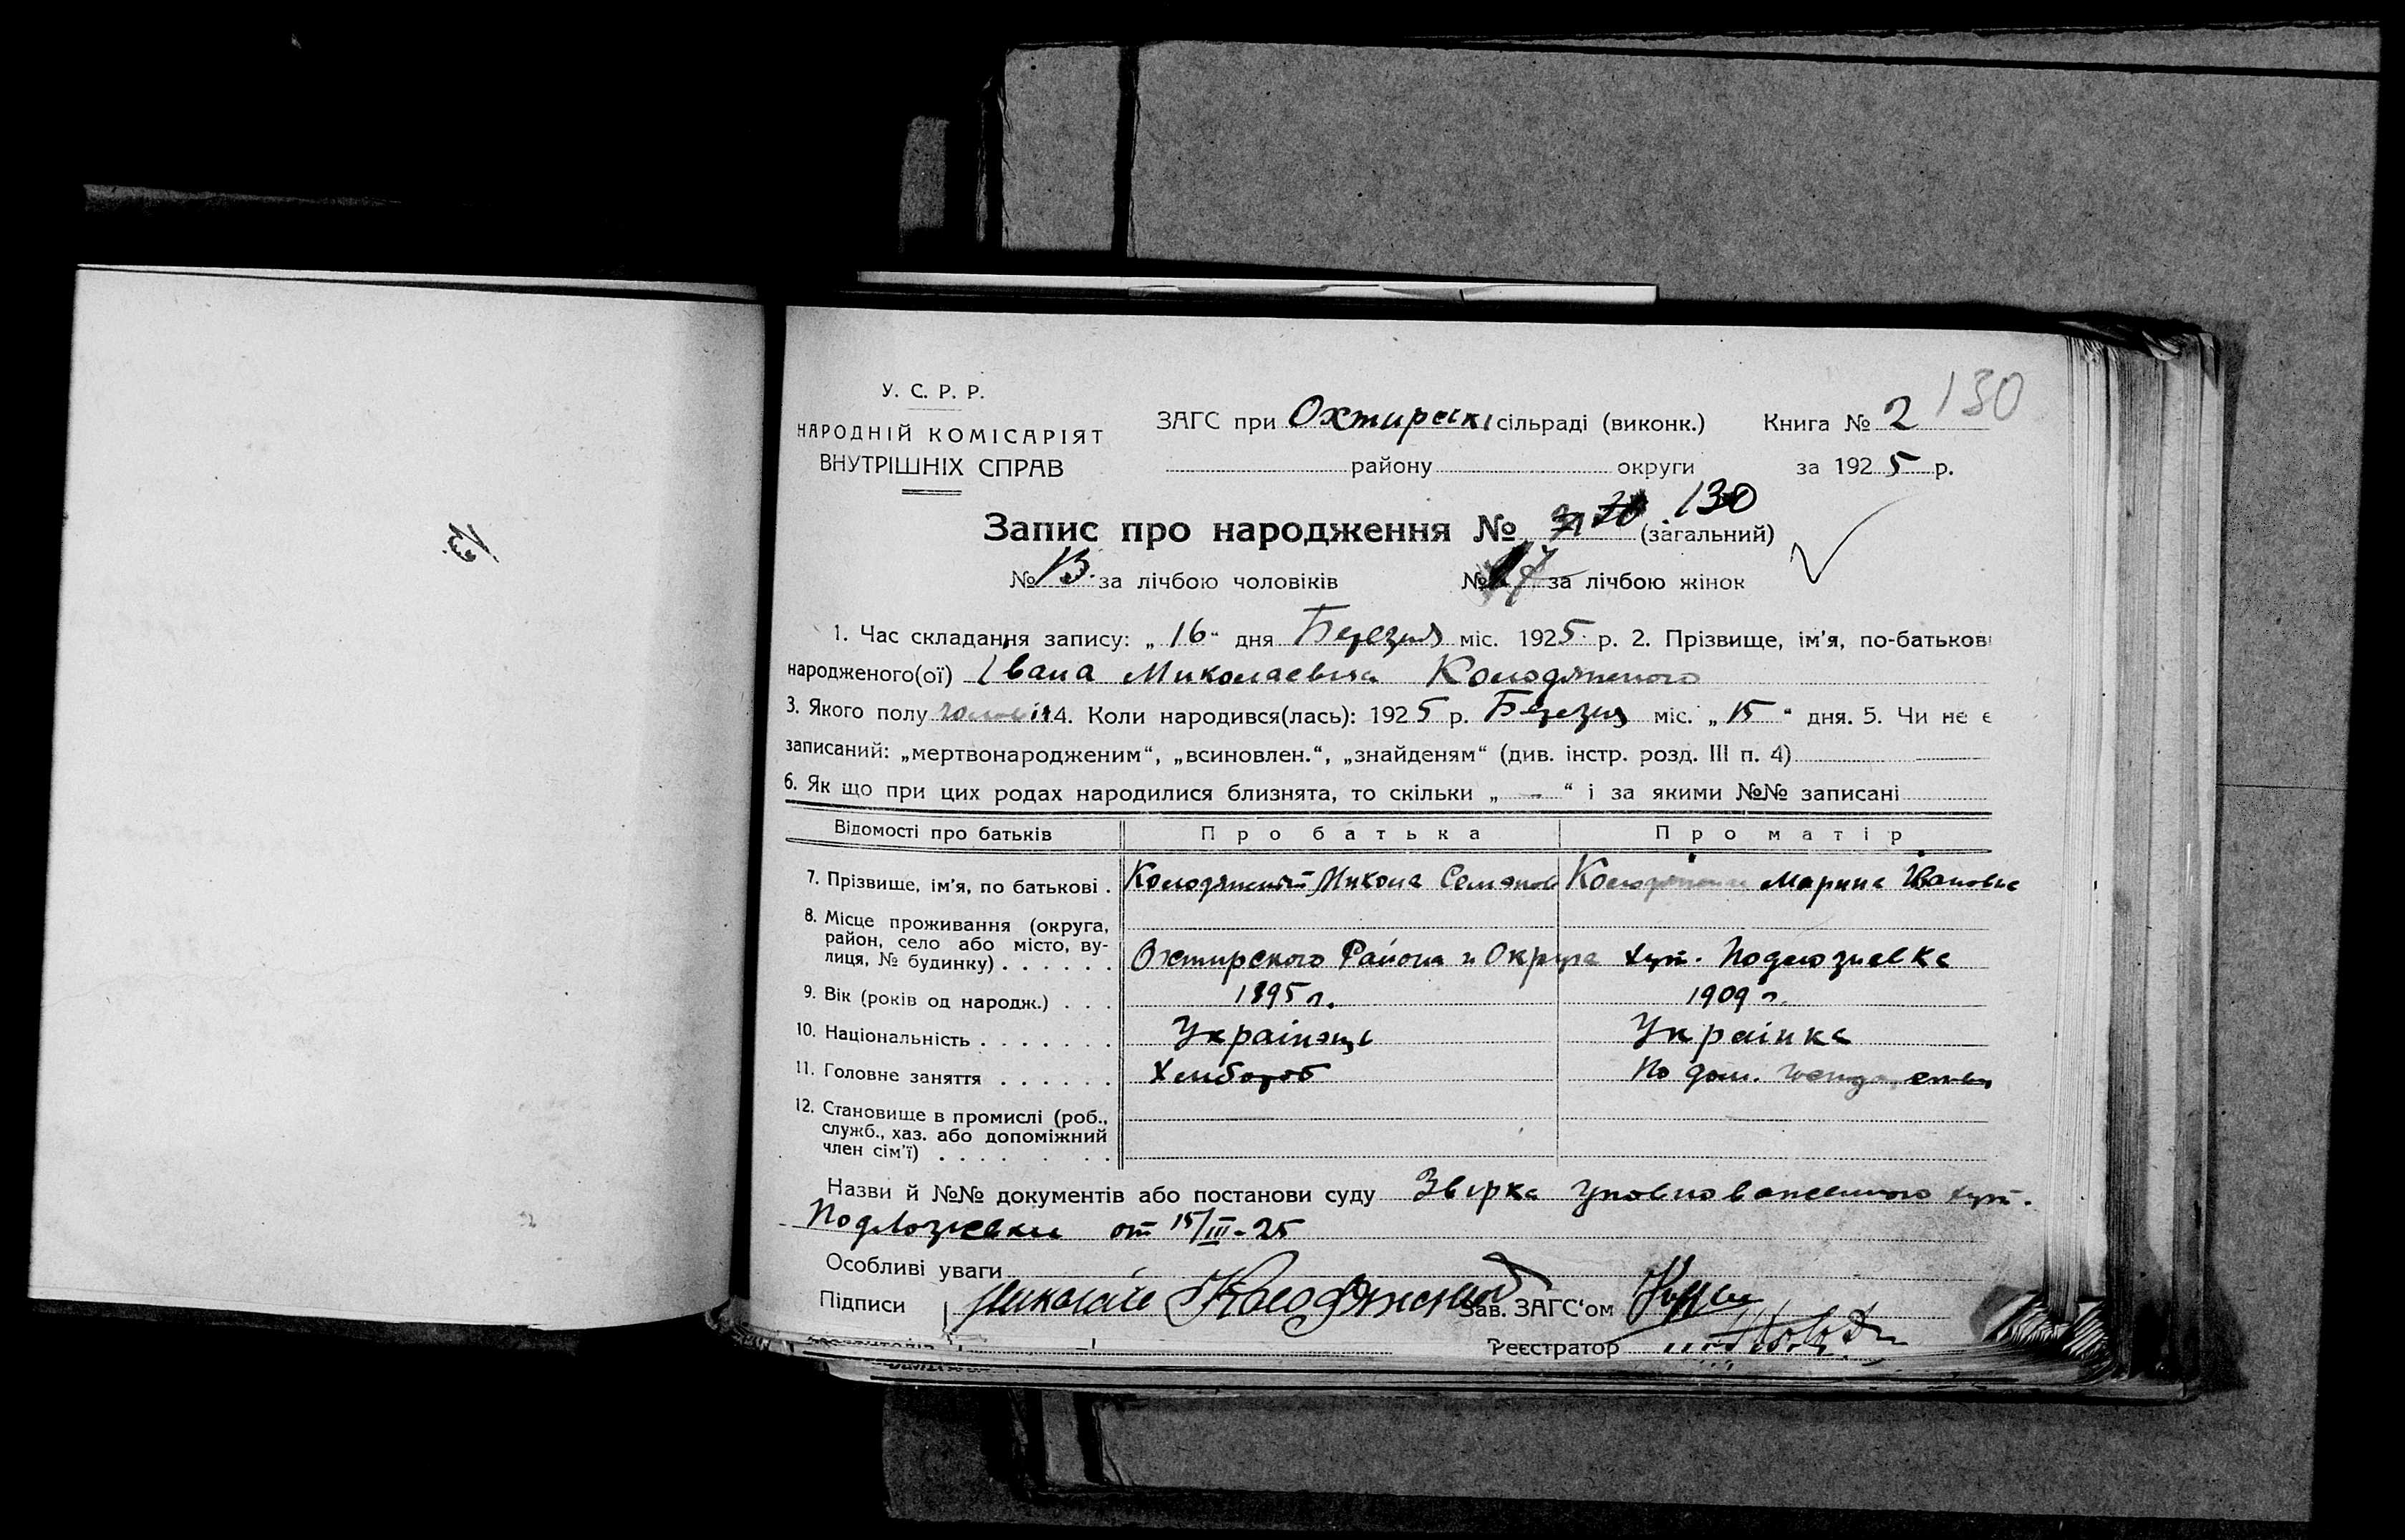 130
У. С. Р. Р.
НАРОДНІЙ КОМІСАРІЯТ
ВНУТРІШНІХ СПРАВ
ЗАГС при Охтирські сільраді (виконк.) Книга № 2
району округи за 1925 р.
Запис про народження № 130 (загальний)
№ 13. за лічбою чоловіків № за лічбою жінок
13.
1. Час складання запису: „16“ дня Березня міс. 1925 р. 2. Прізвище, ім'я, по-батькові
народженого(ої) Івана Миколаевича Колодяжного
3. Якого полу 4. Коли народився(лась): 1925 р. Березня міс. „15“ дня. 5. Чи не є
записаний: „мертвонародженим“, „всиновлен.“, „знайденям“ (див. інстр. розд. III п. 4)
6. Як що при цих родах народилися близнята, то скільки „ - “ і за якими №№ записані
Відомості про батьків Про батька Про матір
7. Прізвище, ім'я, по батькові . Колодяжний Микола Семэнов Марина Івановна
8. Місце проживання (округа,
район, село або місто, ву-
лиця, № будинку) . . . . . . Охтирского Района и Округа хут. Подлозиевка
9. Вік (років од народж.) . . . 1895 г. 1909 г.
10. Національність . . . . . . . Украінэць Украінка
11. Головне заняття . . . . . . Хлибороб По дом.
12. Становище в промислі (роб.,
служб., хаз. або допоміжний
член сім'ї) . . . . . . .
Назви й №№ документів або постанови суду Звірка Уповноваженного хут.
Подлозиевки от 15/III-25
Особливі уваги
Підписи Николай Колодяжный Зав. ЗАГС'ом
Реєстратор